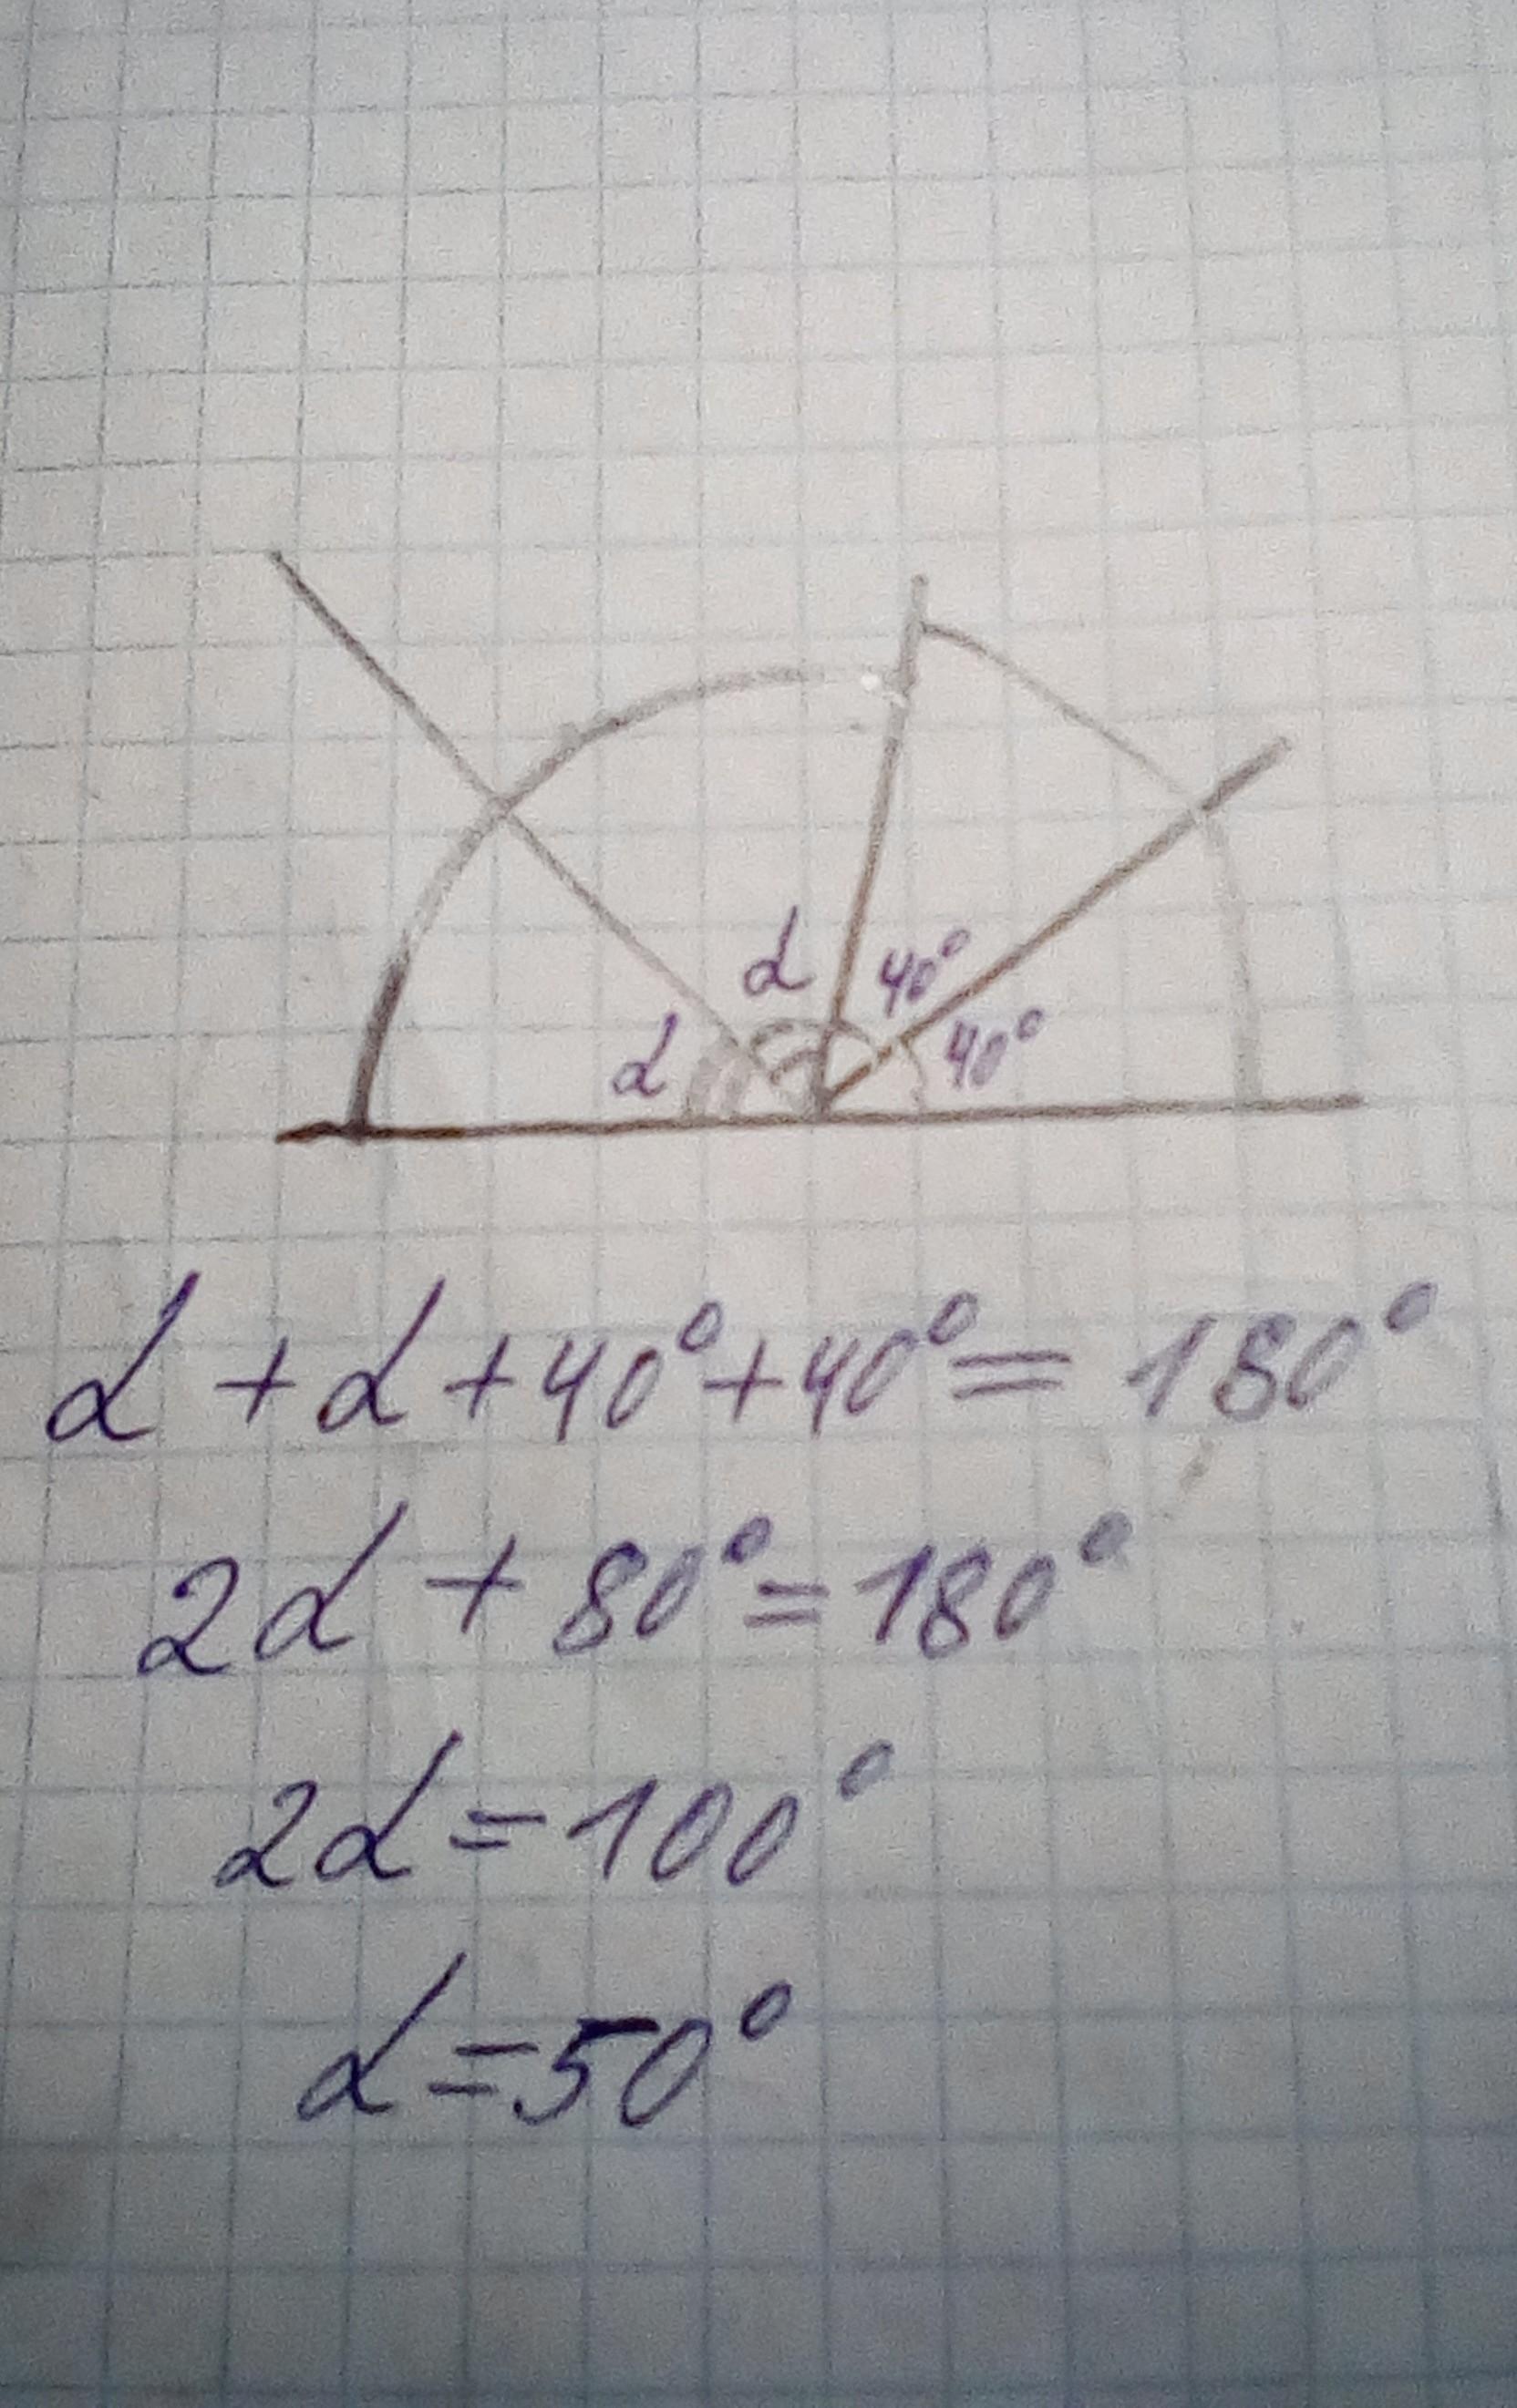 α 40°
α 40°
α + α + 40° + 40° = 180°
2α + 80° = 180°
2α = 100°
α = 50°